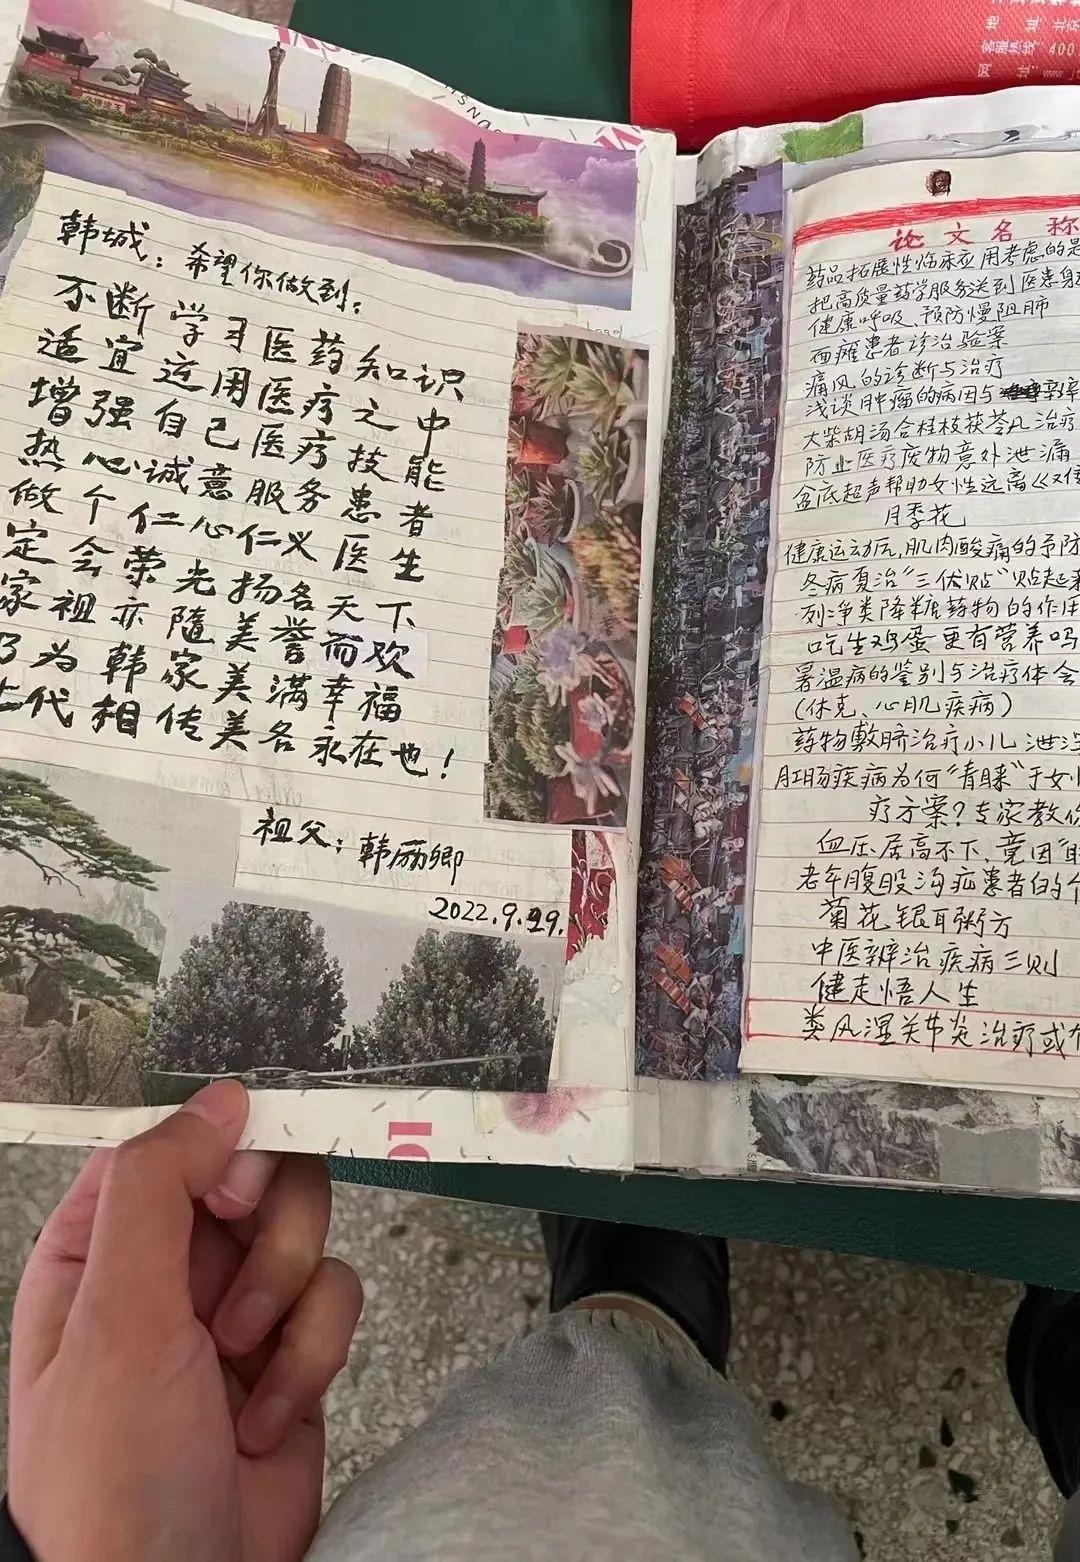 韩城：希望你做到：
不断学习医药知识
适宜运用医疗之中
增强自己医疗技能
热心诚意服务患者
做个仁心仁义医生
定会荣光扬名天下
家祖亦随美誉而欢
乃为韩家美满幸福
代相传美名永在也！
祖父：韩励卿
2022.9.29.
地 址：北京
客服热线：400
网 址：www.j
论文名称
药品拓展性临床应用考虑的是
把高质量药学服务送到医患身
健康呼吸、预防慢阻肺
面瘫患者诊治验案
痛风的诊断与治疗
浅谈肿瘤的病因与
大柴胡汤合桂枝茯苓丸治疗
防止医疗废物意外泄漏
盆底超声帮助女性远离
月季花
健康运动后,肌肉酸痛的予防
冬病夏治“三伏贴”贴起来
列净类降糖药物的作用
吃生鸡蛋更有营养吗
暑温病的鉴别与治疗体会
(休克、心肌疾病)
药物敷脐治疗小儿泄泻
肛肠疾病为何“青睐”于女性
疗方案?专家教你
血压居高不下、竟因“
老年腹股沟疝患者的个
菊花银耳粥方
中医辨治疾病三则
健走悟人生
类风湿关节炎治疗或